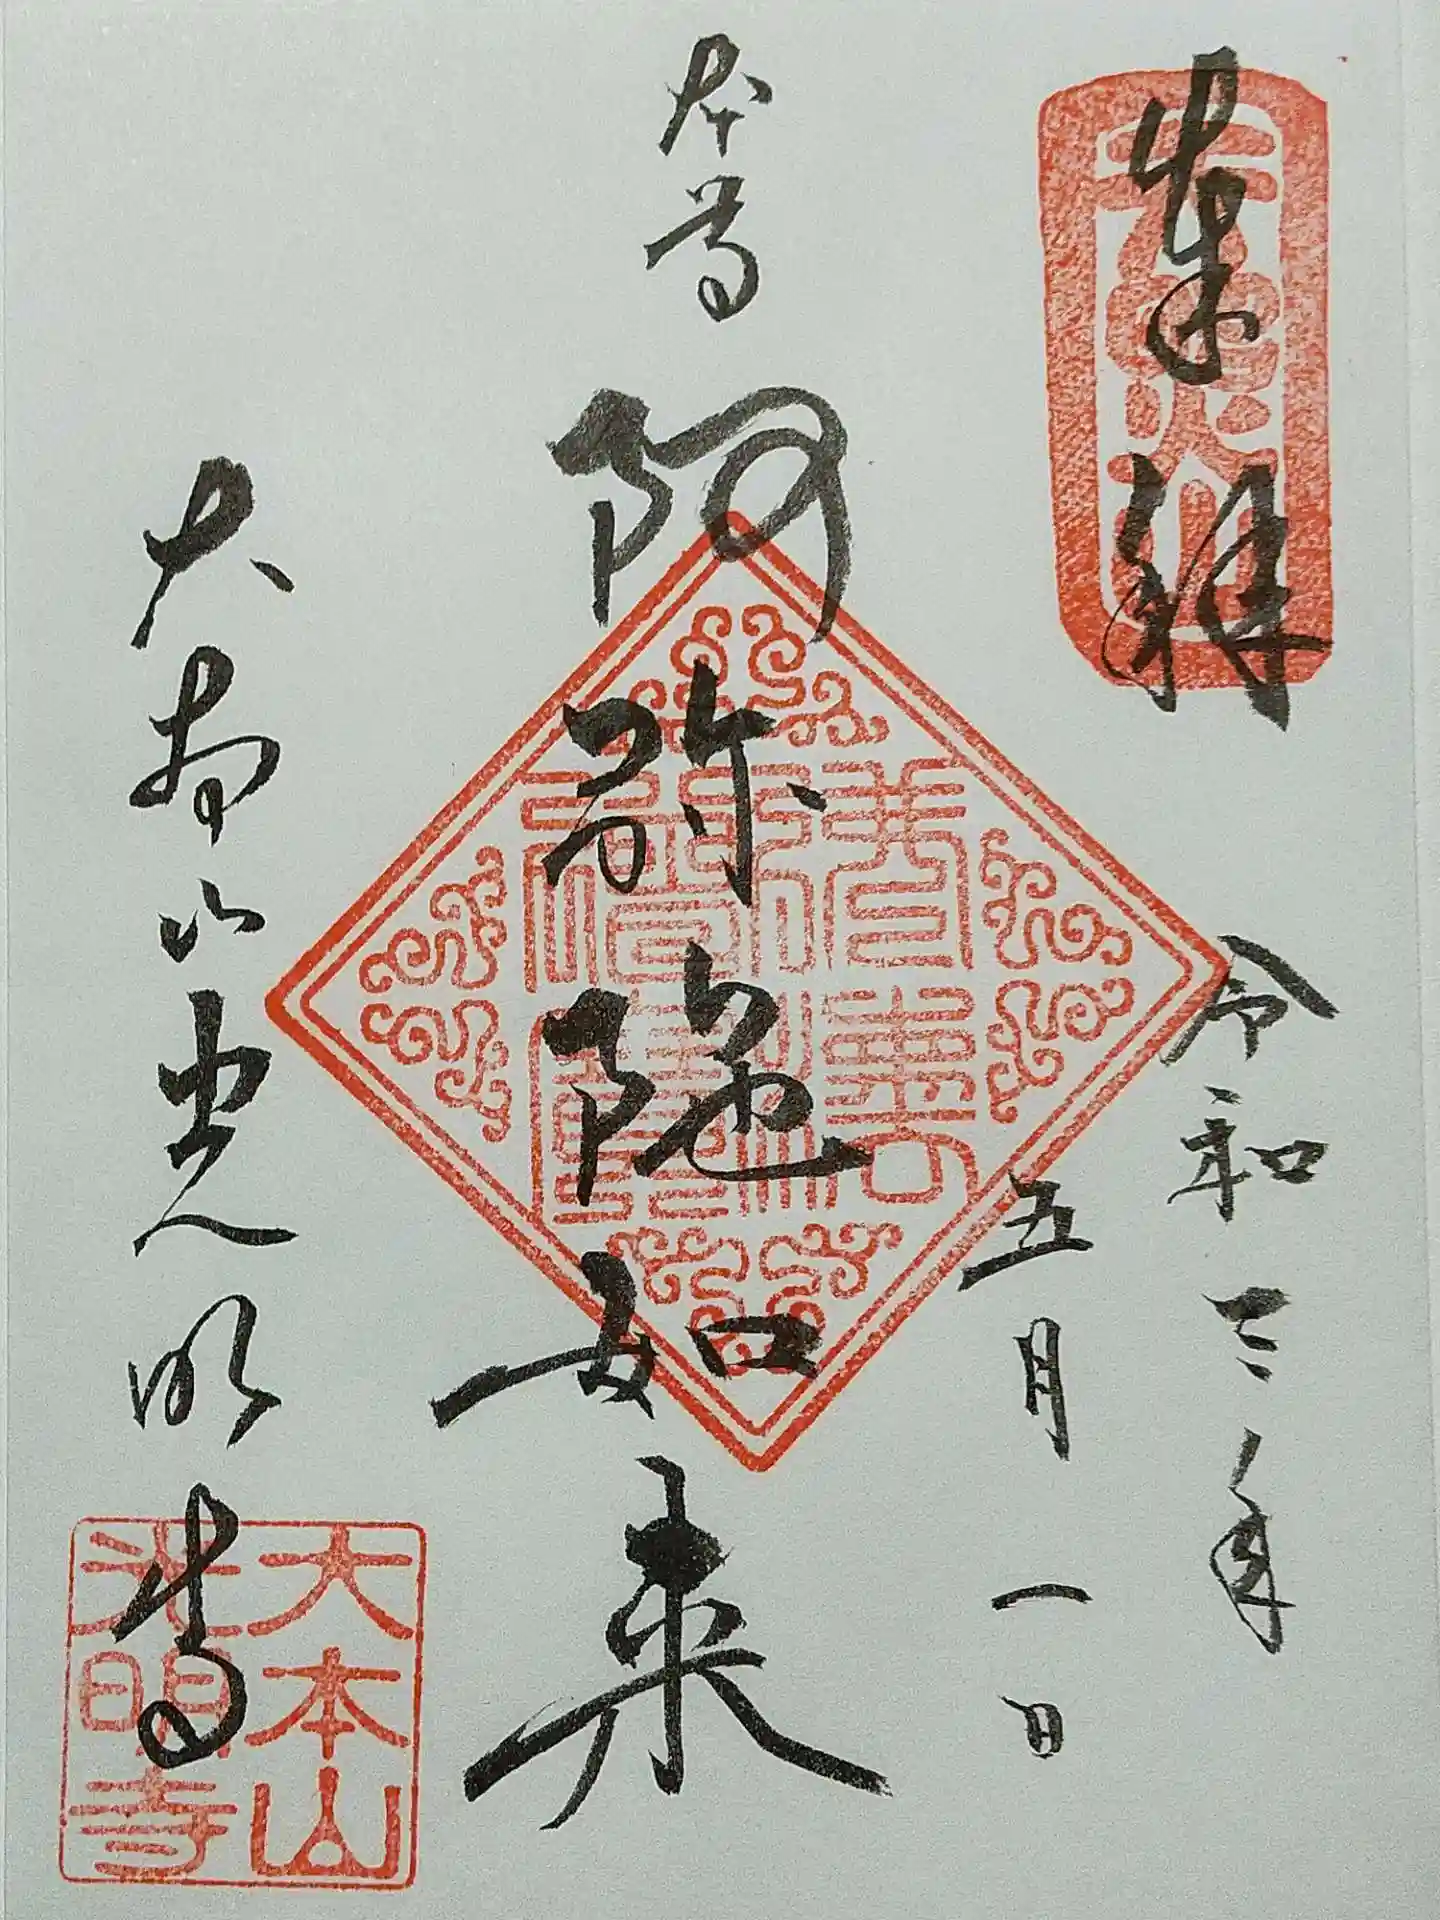 奉拝
令和三年
五月一日
本尊 阿弥陀如来
大本山光明寺
天照山
大本山
光明寺